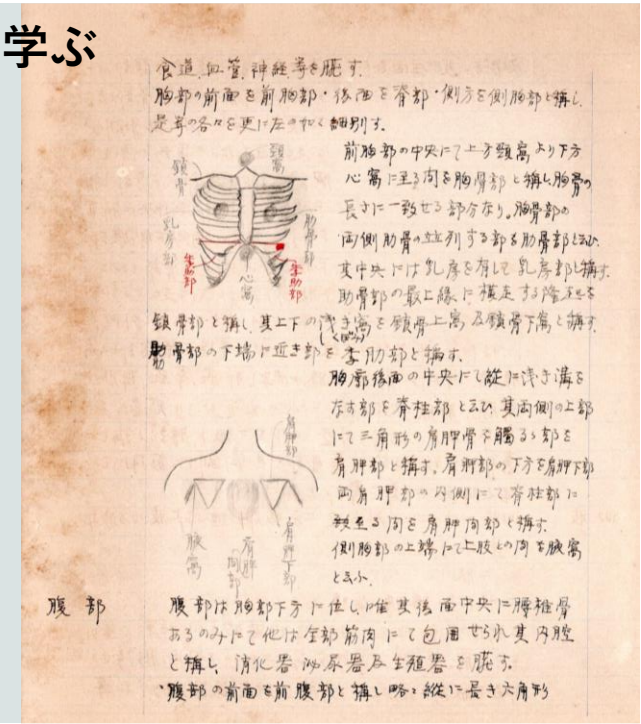 学ぶ
食道、血管、神経等を臓す。
胸部の前面を前胸部・後面を脊部・側方を側胸部と稱し
是等の各々を更に左の如く細別す。
前胸部の中央にて上方頸窩より下方
心窩に至る間を胸骨部と稱し胸骨の
長さに一致せる部分なり。胸骨部の
両側肋骨の並列する部を肋骨部と云ひ
其中央には乳房を有して乳房部と稱す。
肋骨部の最上縁に横走する隆起を
鎖骨部と稱し、其上下の浅き窩を鎖骨上窩及鎖骨下窩と稱す。
肋骨部の下端に近き部を季肋部と稱す。
頸窩
鎖骨
乳房部
肋骨部
季肋部
心窩
季肋部
胸廓後面の中央にて縦に浅き溝を
なす部を脊柱部と云ひ其両側の上部
にて三角形の肩胛骨を觸るゝ部を
肩胛部と稱す。肩胛部の下方を肩胛下部
両肩胛部の内側にて脊柱部に
至る間を肩胛間部と稱す。
側胸部の上端にて上肢との間を腋窩
と云ふ。
肩胛部
腋窩
肩胛間部
肩胛下部
腹部
腹部は胸部下方に位し、唯其後面中央に腰椎骨
あるのみにて他は全部筋肉にて包囲せられ其内腔
と稱し、消化器泌尿器及生殖器を臓す。
腹部の前面を前腹部と稱し略々縦に長き六角形